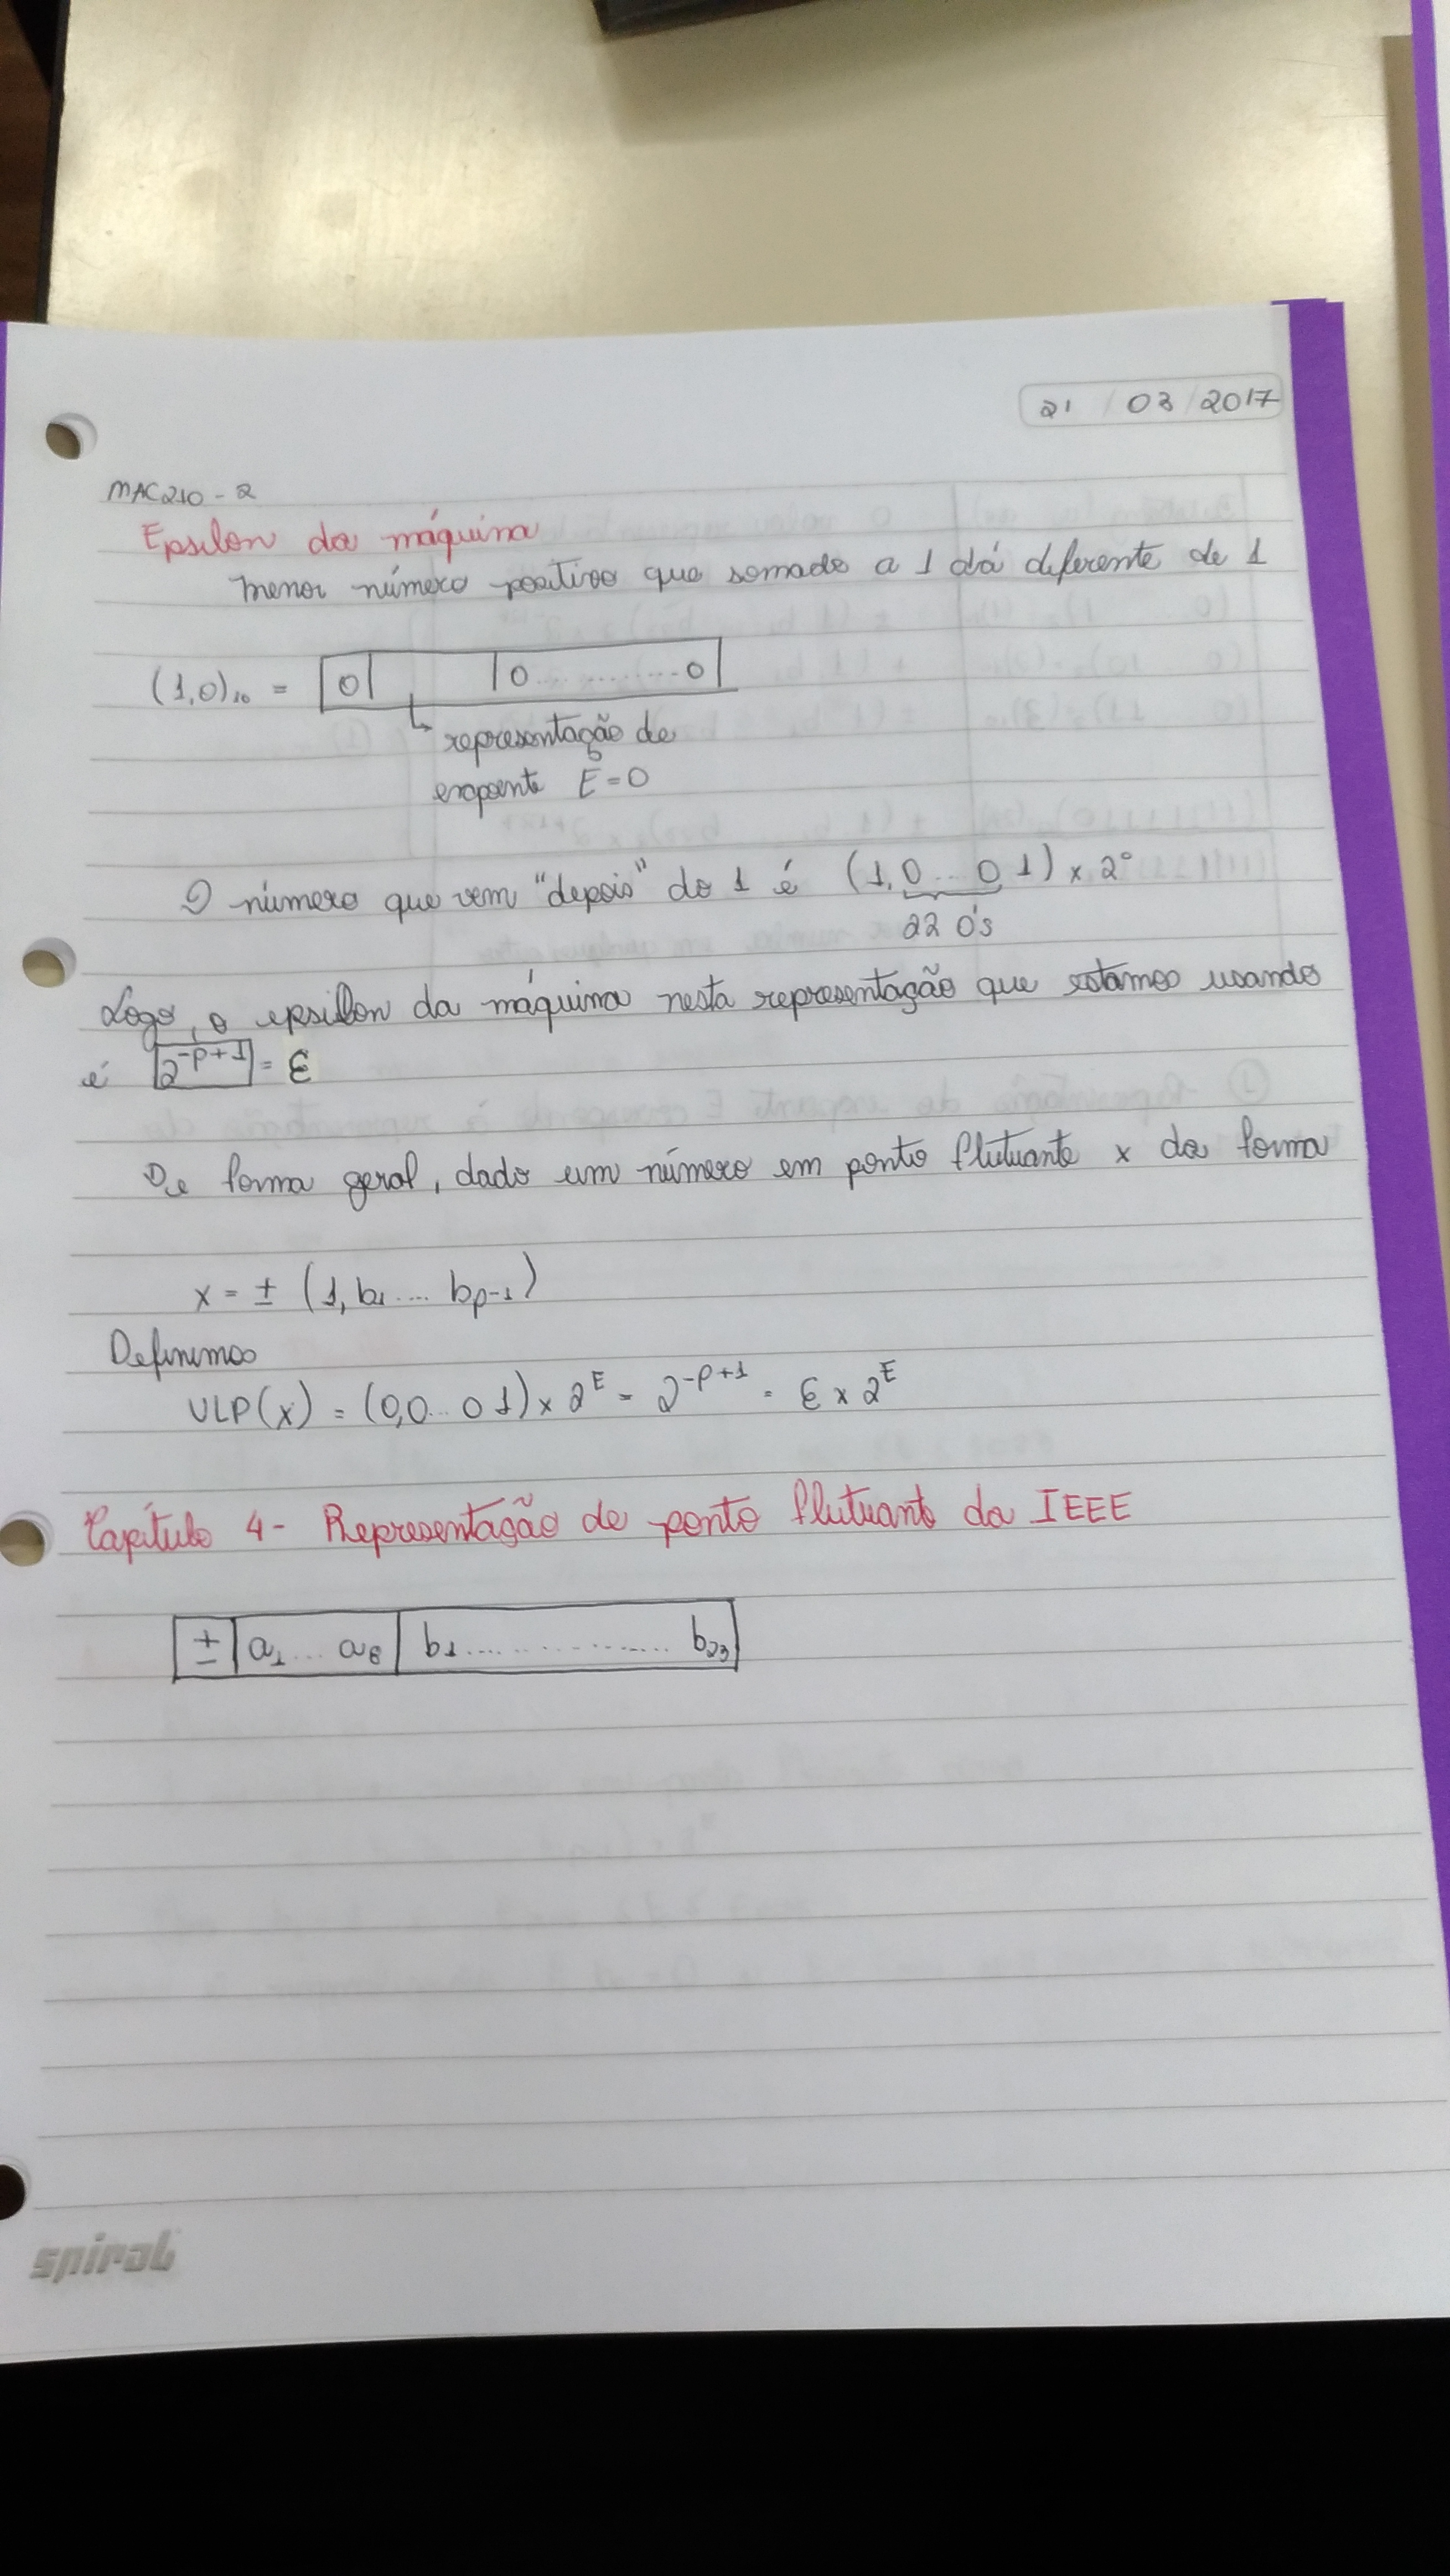 21 / 03 / 2017
MAC210 - 2
Epsilon da máquina
menor número positivo que somado a 1 dá diferente de 1
(1,0)₁₀ = 0 0...........0
representação de
expoente E = 0
O número que vem "depois" do 1 é (1,0...01) × 2⁰
22 0's
Logo, o epsilon da máquina nesta representação que estamos usando
é 2^{-p+1} = ε
De forma geral, dado um número em ponto flutuante x da forma
x = ± (1,b₁.... b_{p-1})
Definimos
ULP(x) = (0,0...01) × 2^E = 2^{-p+1} = ε × 2^E
Capítulo 4 - Representação de ponto flutuante da IEEE
± a₁...a₈ b₁.................b₂₃
spiral